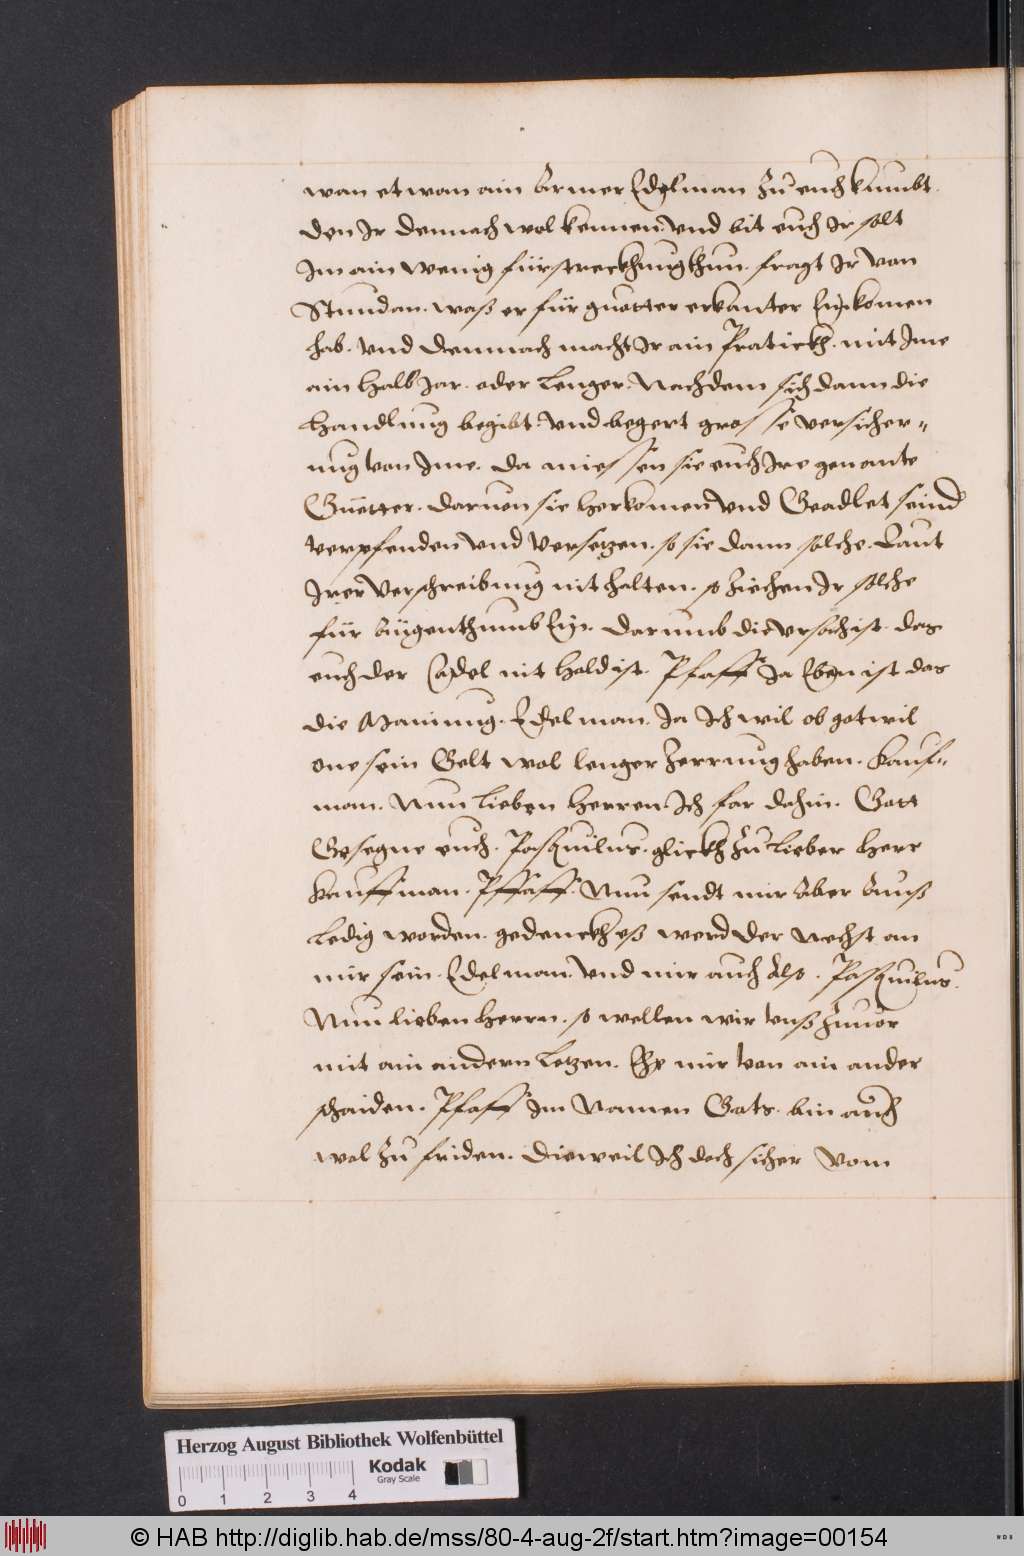 wan etwan ain Armer Edelman zu euch kumbt.
den Ir dennach wol kennen, vnd bit euch Ir solt
Im ain wenig fürstreckhung thun. fragt Ir von
Stundan. waß er für guetter erkanter Einkomen
hab. vnd demnach macht Ir ain Pratickh. mit Ime
ain halb Jar. oder lenger. Nachdem sich dann die
Handlung begibt. vnd begert grosse versicher-
ung von Ime. da miessen sie euch Ire genante
Güetter. daruon sie herkomen vnd Geadlet seind
verpfenden vnd versetzen. so sie dann solche. Laut
Irer Verschreibung nit halten. so ziechen Ir solche
für Aügenthumb Ein. darumb die vrsach ist. das
euch der Eadel nit hold ist. Pfaff Ja Eben ist das
die Mainung. Edelman. Ja Ich wil ob got wil
one sein Gelt wol lenger Zerrung haben. Kauf-
man. Nun lieben Herren Ich far dahin. Gott
Gesegne euch. Pasquilus. glickh zu lieber Herr
Kauffman. Pfaff. Nun sendt mir Aber Auß
Ledig worden. gedenckh eß werd der Nechst an
mir sein. Edelman. vnd mir auch Also. Pasquilus.
Nun lieben Herrn. so wellen wir vnß zuuor
mit ain andern Letzen. Ehe mir von ain ander
schaiden. Pfaff Im Namen Gots. bin auch
wol zu friden. dieweil Ich doch sicher vom
Herzog August Bibliothek Wolfenbüttel
Kodak
Gray Scale
0 1 2 3 4
© HAB http://diglib.hab.de/mss/80-4-aug-2f/start.htm?image=00154